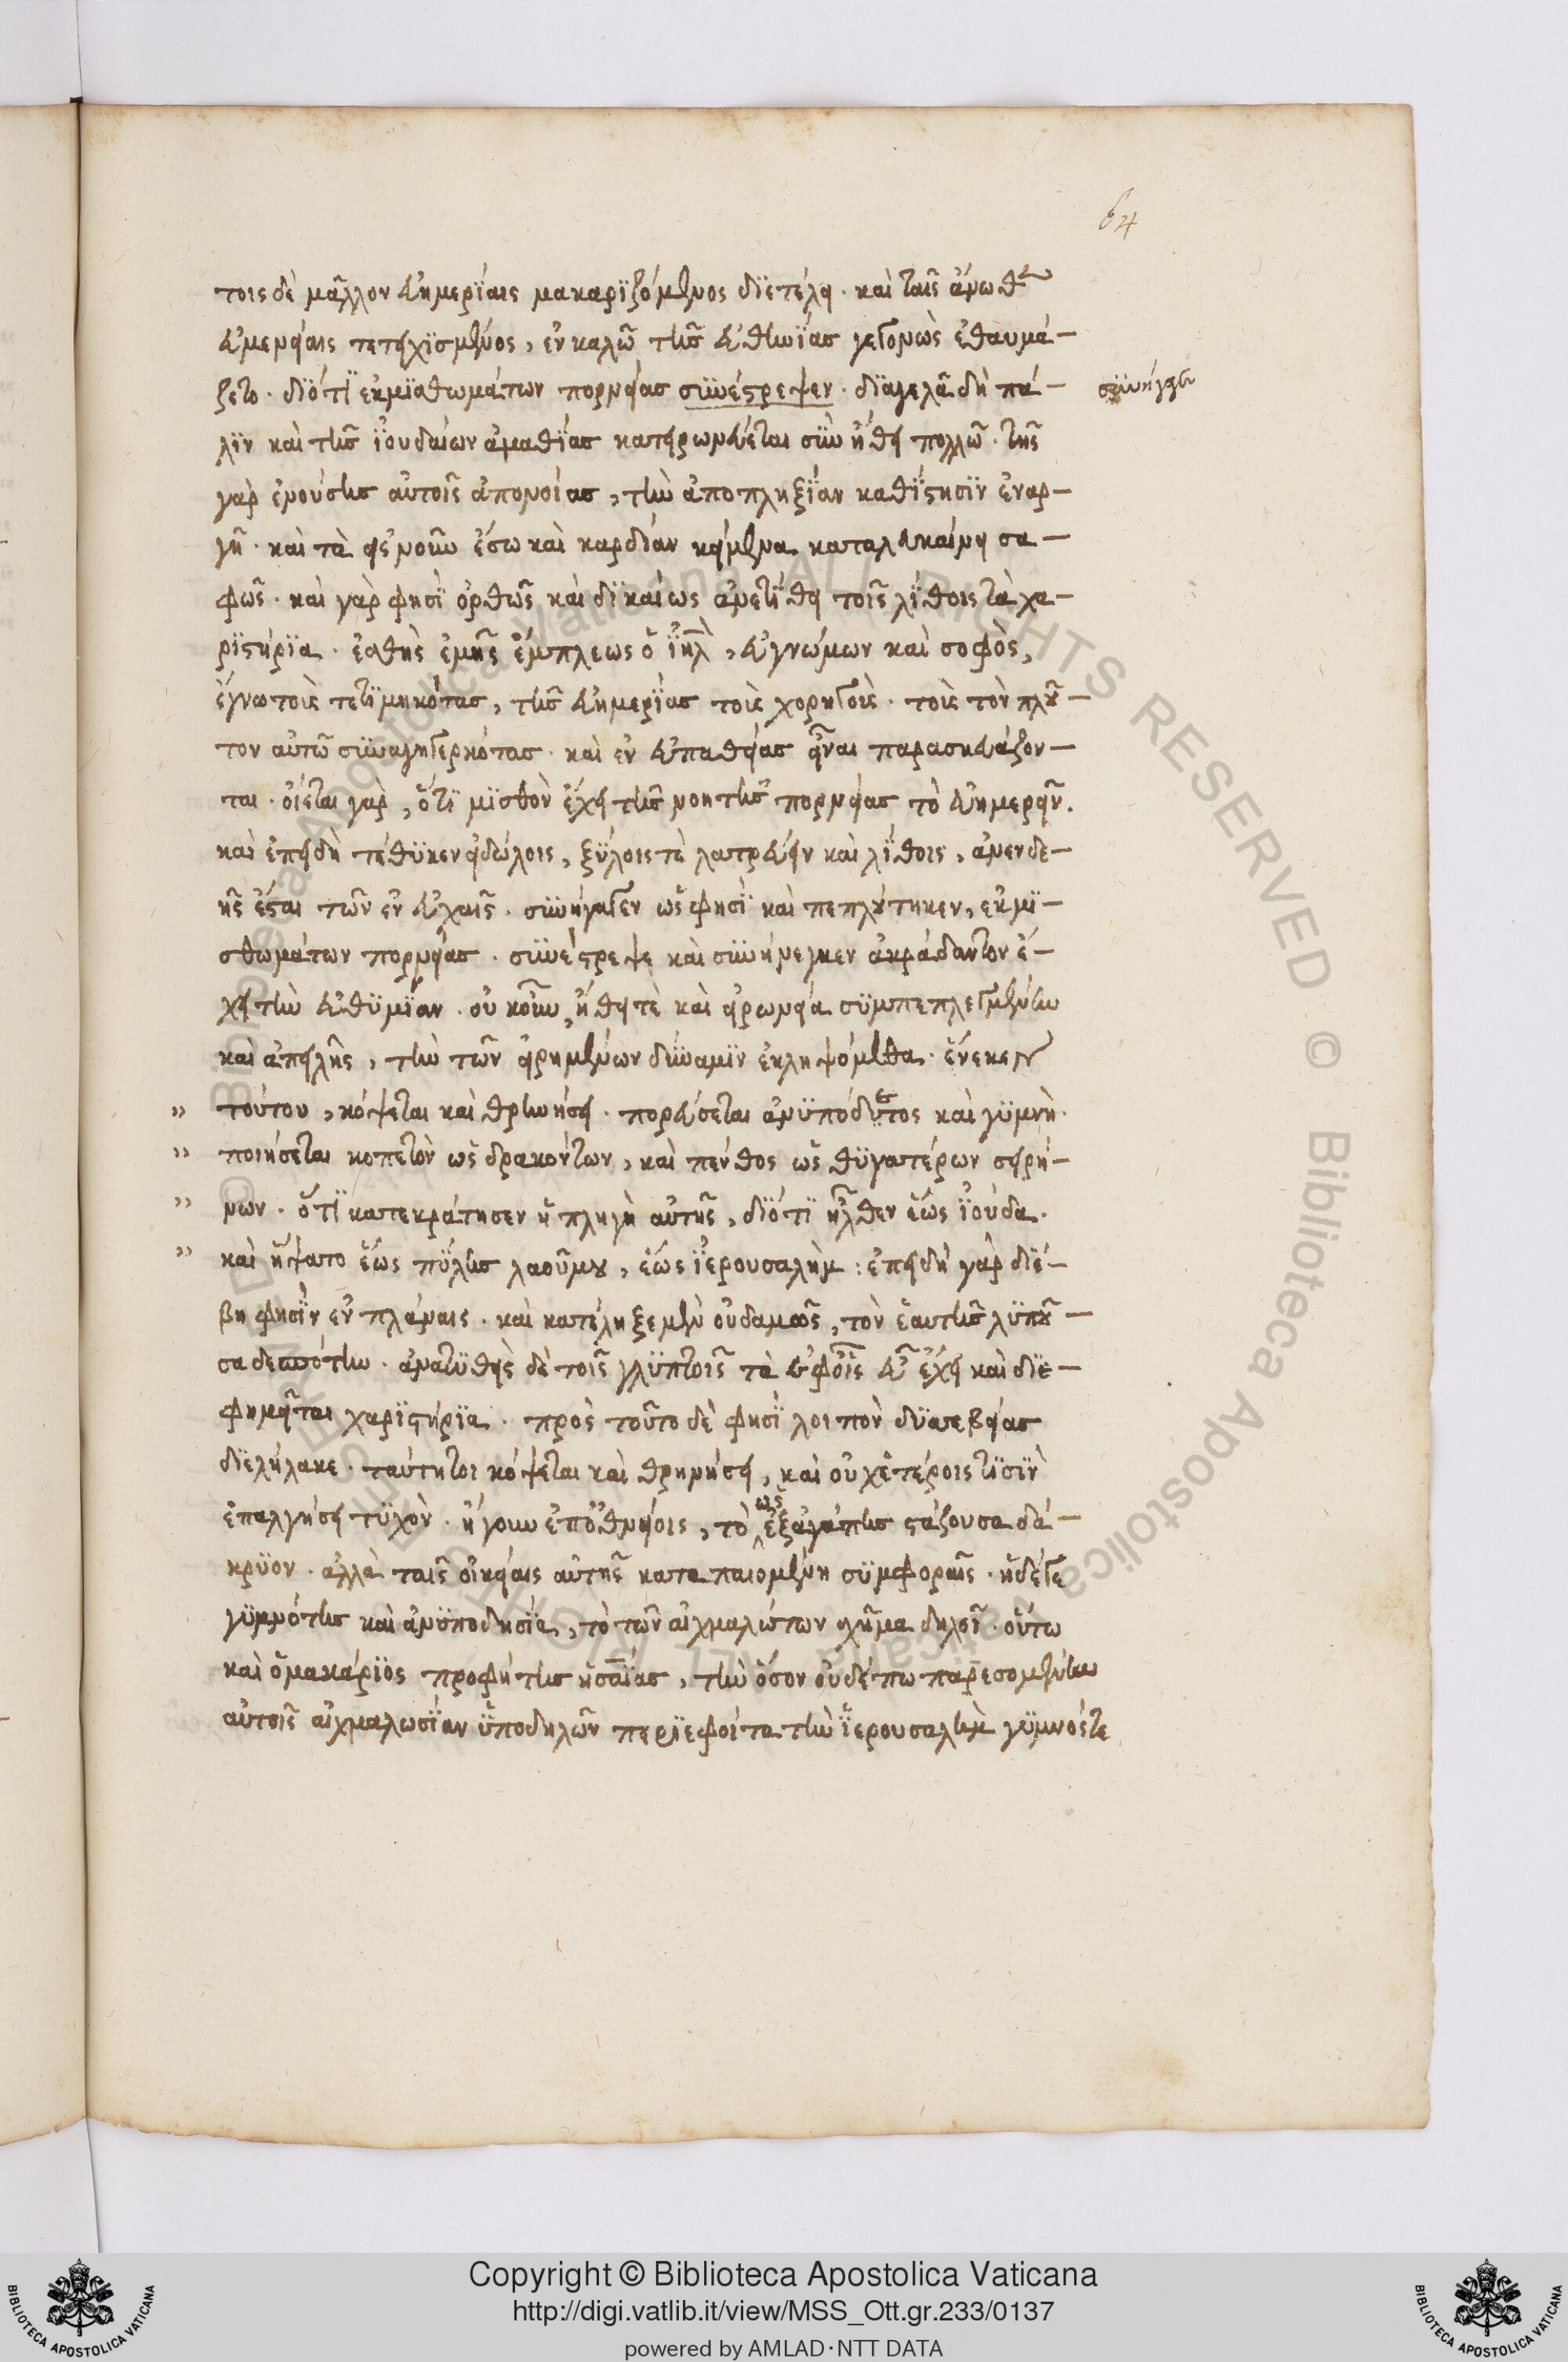 64
τοις δὲ μᾶλλον εὐημερίαις μακαριζόμενος διετέλει · καὶ ταῖς ἄνωθεν
εὐμενείαις τετειχισμένος, ἐν καλῶ τῆς εὐθηνίας γεγονὼς ἐθαυμά-
ζετο · διότι ἐκ μισθωμάτων πορνείας συνέστρεψεν · διαγελᾶ δὴ πά-
συνήγαγεν
λιν καὶ τῆς ἰουδαίων ἀμαθίας κατειρωνεύεται σὺν ἤθει πολλῶ · τῆς
γὰρ ἐνούσης αὐτοῖς ἀπονοίας, τὴν ἀποπληξίαν καθίστησιν ἐναρ-
γῆ · καὶ τὰ εἰς νοῦν ἔσω καὶ καρδίαν κείμενα καταλευκαίνει σα-
φῶς · καὶ γάρ φησι ὀρθῶς καὶ δικαίως ἀνετίθει τοῖς λίθοις τὰ χα-
ριστήρια · ἐσθὴς ἐμῆς ἔμπλεως ὁ ἰηλ, εὐγνώμων καὶ σοφὸς,
ἔγνω τοὺς τετιμηκότας, τῆς εὐημερίας τοὺς χορηγοὺς · τοὺς τὸν πλοῦ-
τον αὐτῶ συναγηγερκότας · καὶ ἐν εὐπαθείας εἶναι παρασκευάζον-
ται · οἴεται γὰρ, ὅτι μισθὸν ἔχει τῆς νοητῆς πορνείας τὸ εὐημερεῖν.
καὶ ἐπειδὴ τέθυκεν εἰδώλοις, ξύλοις τὲ λατρεύειν καὶ λίθοις, ἀνενδε-
ὴς ἔσται τῶν ἐν εὐχαῖς · συνήγαγεν ὥς φησι καὶ πεπλούτηκεν, ἐκ μι-
σθωμάτων πορνείας · συνέστρεψε καὶ συνήνεγκεν ἀκράδαντον ἔ-
χει τὴν εὐθυμίαν · οὐκοῦν, ἤθει τὲ καὶ εἰρωνεία συμπεπλεγμένην
καὶ ἀπειλῆς, τὴν τῶν εἰρημένων δύναμιν ἐκληψόμεθα · ἕνεκεν
" τούτου, κόψεται καὶ θρηνήσει · πορεύσεται ἀνυπόδετος καὶ γυμνὴ ·
" ποιήσεται κοπετὸν ὡς δρακόντων, καὶ πένθος ὡς θυγατέρων σειρή-
" νων · ὅτι κατεκράτησεν ἡ πληγὴ αὐτῆς, διότι ἦλθεν ἕως ἰούδα ·
" καὶ ἥψατο ἕως πύλης λαοῦ μου, ἕως ἱερουσαλὴμ : ἐπειδὴ γὰρ διέ-
βη φησὶν ἐν πλάναις · καὶ κατέληξε μὲν οὐδαμῶς, τὸν ἑαυτῆς λυποῦ-
σα δεσπότην · ἀνατιθεὶς δὲ τοῖς γλυπτοῖς τὰ ἐφ' οἷς εὖ ἔχει καὶ διε-
φημεῖται χαριστήρια · πρὸς τοῦτο δέ φησι λοιπὸν δυσσεβείας
διελήλακε · ταύτητοι κόψεται καὶ θρηνήσει, καὶ οὐχ ἑτέροις τισὶν
ἐπαλγήσει τυχὸν · ἤγουν ἐπ' ὀθνείοις, τὸ ὡς ἐξ ἀγάπης στάζουσα δά-
κρυον · ἀλλὰ ταῖς οἰκείαις αὐτῆς καταπαιομένη συμφοραῖς · ἡ δέ γε
γυμνότης καὶ ἀνυποδησία, τὸ τῶν αἰχμαλώτων σχῆμα δηλοῖ · οὕτω
καὶ ὁ μακάριος προφήτης ἡσαΐας, τὴν ὅσον οὐδέπω παρεσομένην
αὐτοῖς αἰχμαλωσίαν ὑποδηλῶν περιεφοίτα τὴν ἱερουσαλὴμ γυμνός τε
Copyright © Biblioteca Apostolica Vaticana
http://digi.vatlib.it/view/MSS_Ott.gr.233/0137
powered by AMLAD·NTT DATA